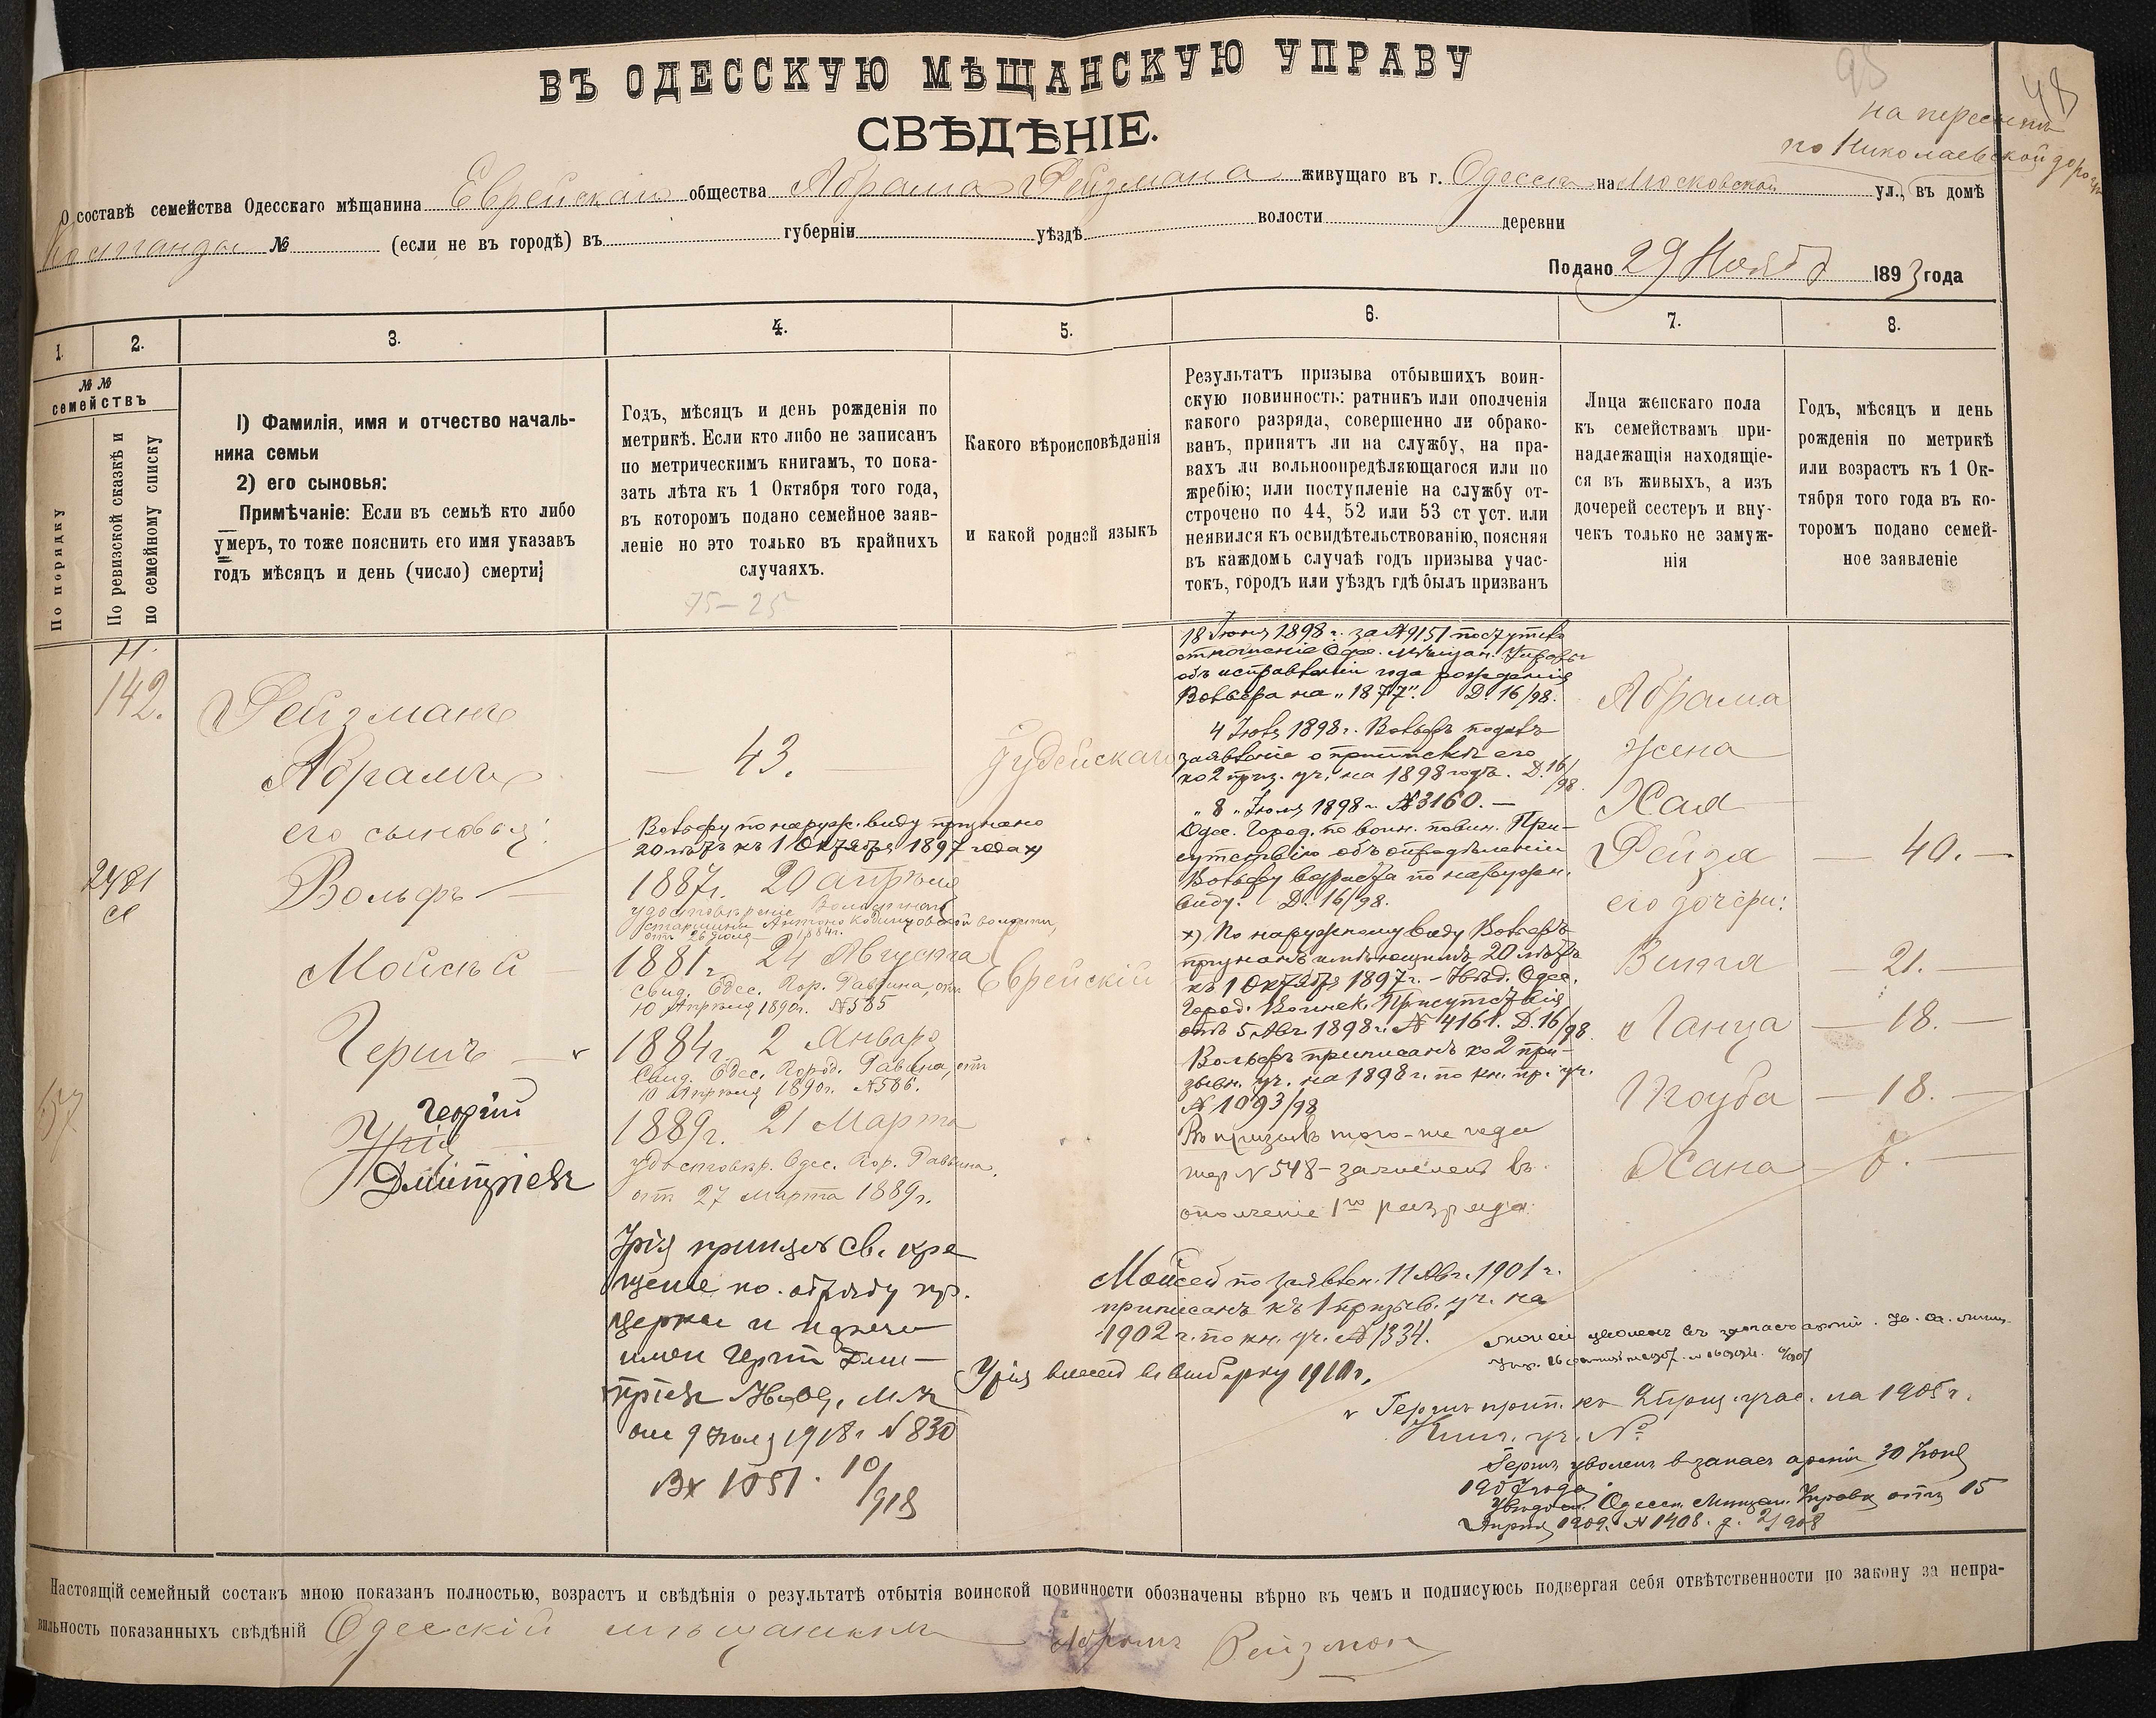 ВЪ ОДЕССКУЮ МѢЩАНСКУЮ УПРАВУ
СВѢДѢНІЕ.
48
по Николаевской дороге
О составѣ семейства Одесскаго мѣщанина Еврейскаго общества Абрама Рейзмана живущаго въ г. Одесса на Московской ул., въ домѣ
№ (если не въ городѣ) въ губерніи уѣздѣ волости деревни
Подано 29 Ноября 1893 года
1.
2.
3.
4.
5.
6.
7.
8.
№ №
семействъ
По порядку
По ревизской сказкѣ и
по семейному списку
1) Фамилія, имя и отчество началь-
ника семьи
2) его сыновья:
Примѣчаніе: Если въ семьѣ кто либо
умеръ, то тоже пояснить его имя указавъ
годъ мѣсяцъ и день (число) смерти;
Годъ, мѣсяцъ и день рожденія по
метрикѣ. Если кто либо не записанъ
по метрическимъ книгамъ, то пока-
зать лѣта къ 1 Октября того года,
въ которомъ подано семейное заяв-
леніе но это только въ крайнихъ
случаяхъ.
75–25
Какого вѣроисповѣданія
и какой родной языкъ
Результатъ призыва отбывшихъ воин-
скую повинность: ратникъ или ополченія
какого разряда, совершенно ли обрако-
ванъ, принятъ ли на службу, на пра-
вахъ ли вольноопредѣляющагося или по
жребію; или поступленіе на службу от-
строчено по 44, 52 или 53 ст уст. или
неявился къ освидѣтельствованію, поясняя
въ каждомъ случаѣ годъ призыва учас-
токъ, городъ или уѣздъ гдѣ былъ призванъ
Лица женскаго пола
къ семействамъ при-
надлежащія находящіе-
ся въ живыхъ, а изъ
дочерей сестеръ и вну-
чекъ только не замуж-
нія
Годъ, мѣсяцъ и день
рожденія по метрикѣ
или возрастъ къ 1 Ок-
тября того года въ ко-
торомъ подано семей-
ное заявленіе
142.
Рейзманъ
Абрамъ
его сыновья:
2481
Вольфъ —
Мойсѣй —
Гершъ —
57
Георгій
Урія
Дмитріевъ
— 43. —
Вольфу по наруж. виду признано
20 лѣтъ къ 1 Октября 1897 года х)
1887г. 20 Апрѣля
удостовѣреніе Волостного
старшины Антоно Кодинцовской волости,
отъ 26 Іюля 1884г.
1881г. 24 Августа
Свид. Одес. Гор. Раввина, отъ
10 Апрѣля 1890г. №585
1884г. 2 Января
Свид. Одес. Город. Раввина, отъ
10 Апрѣля 1890г. №586.
1889г. 21 Марта
удостовѣр. Одес. Гор. Раввина,
отъ 27 Марта 1889г.
Урія принялъ Св. кре
щеніе по обряду пр.
церкви и нареченъ
имен Георгій Дми-
тріевъ
от 9 Іюля 1918г. №830
Вх 1051. 10/918
Іудейскаго
Еврейскій
18 Іюня 1898г. за №9151 поступило
отношеніе Одес. Мѣщан. Управы
объ исправленіи года рожденія
Вольфа на „1877". Д. 16/98.
4 Іюля 1898г. Вольфъ подалъ
заявленіе о припискѣ его
ко 2 приз. уч. на 1898 годъ. Д. 16/98.
„8" Іюля 1898г. №3160. —
Одес. Город. по воин. повин. При-
сутствію объ опредѣленіи
Вольфу возраста по наружн.
виду. Д. 16/98.
х) По наружному виду Вольфъ
признанъ имѣющимъ 20 лѣтъ
къ 1 Октября 1897г. — Увѣд. Одес.
Город. Воинск. Присутствія
отъ 5 Авг. 1898г. № 4161. Д. 16/98.
Вольфъ приписанъ ко 2 при-
зывн. уч. на 1898г. по кн. пр. уч.
№ 1093/98
Въ призывъ того-же года
жер №548 – зачисленъ въ
ополченіе 1го разряда.
Абрама
жена
Хая
Рейза — 40. —
его дочери:
— 21. —
— 18. —
Тоуба — 18. —
Хана
Мойсей по заявлен. 11 Авг. 1901г.
приписанъ къ 1 призыв. уч. на
1902г. по кн. уч. №1334.
Моисей уволенъ въ запасъ арміи.
Урія внесен в выборку 1910г.
v Гершъ прип. къ 2 приз. учас. на 1905г.
Книг. уч. №
Гершъ уволенъ в запасъ арміи 30 Іюня
1907 года
Увѣдом. Одесск. Мѣщан. Управы отъ 15
Апрѣля 1909г. №1408. д. 2/908
Настоящій семейный составъ мною показанъ полностью, возрастъ и свѣдѣнія о результатѣ отбытія воинской повинности обозначены вѣрно въ чемъ и подписуюсь подвергая себя отвѣтственности по закону за непра-
вильность показанныхъ свѣдѣній Одесскій мѣщанинъ Абрамъ Рейзман